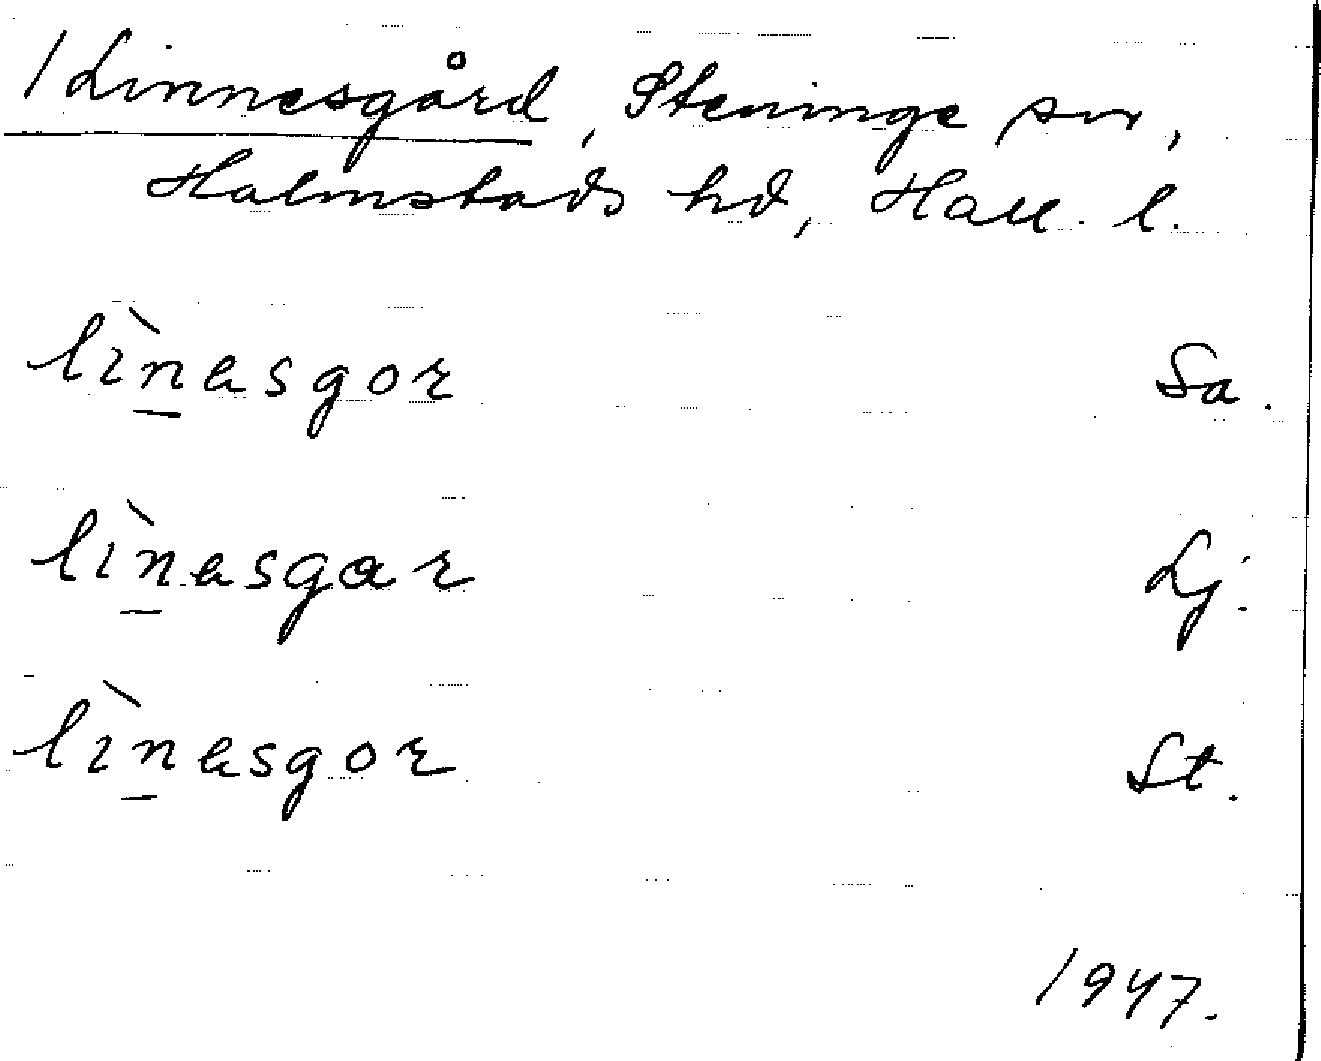 / Linnesgård, Steninge sn,
Halmstads hd, Hall. l.
lìn̲esgor Sa.
lìn̲esgar Lj.
lìn̲esgor St.
1947.